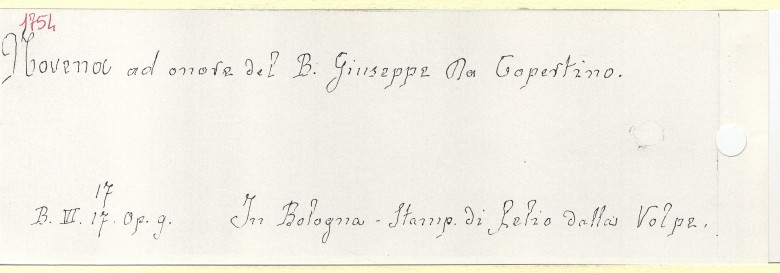 1754
Novena ad onore del B. Giuseppe Da Copertino.
17
B. VII. 17. Op. 9. In Bologna - Stamp. di Lelio dalla Volpe.